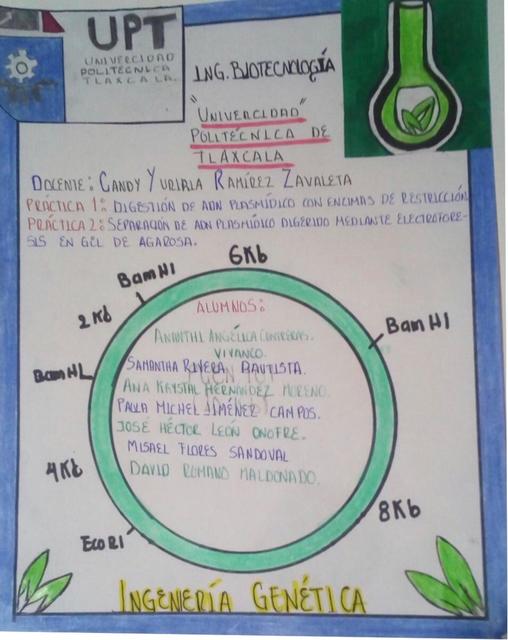 UPT
UNIVERCIDAD
POLITÉCNICA
TLAXCALA.
ING. BIOTECNOLOGÍA
"UNIVERCIDAD"
POLITÉCNICA DE
TLAXCALA
DOCENTE: CANDY YURIRIA RAMÍREZ ZAVALETA
PRÁCTICA 1: DIGESTIÓN DE ADN PLASMÍDICO CON ENCIMAS DE RESTRICCIÓN
PRÁCTICA 2: SEPARACIÓN DE ADN PLASMÍDICO DIGERIDO MEDIANTE ELECTROFORE-
SIS EN GEL DE AGAROSA.
6Kb
BamHI
2Kb
BamHI
BamHI
ALUMNOS:
ANGÉLICA CONTRERAS.
VIVANCO.
SAMANTHA RIVERA BAUTISTA.
ANA KRYSTAL HERNÁNDEZ MORENO.
PAULA MICHEL JIMÉNEZ CAMPOS.
JOSÉ HÉCTOR LEÓN ONOFRE.
MISAEL FLORES SANDOVAL
DAVID ROMANO MALDONADO.
4Kb
8Kb
EcoRI
INGENIERÍA GENÉTICA